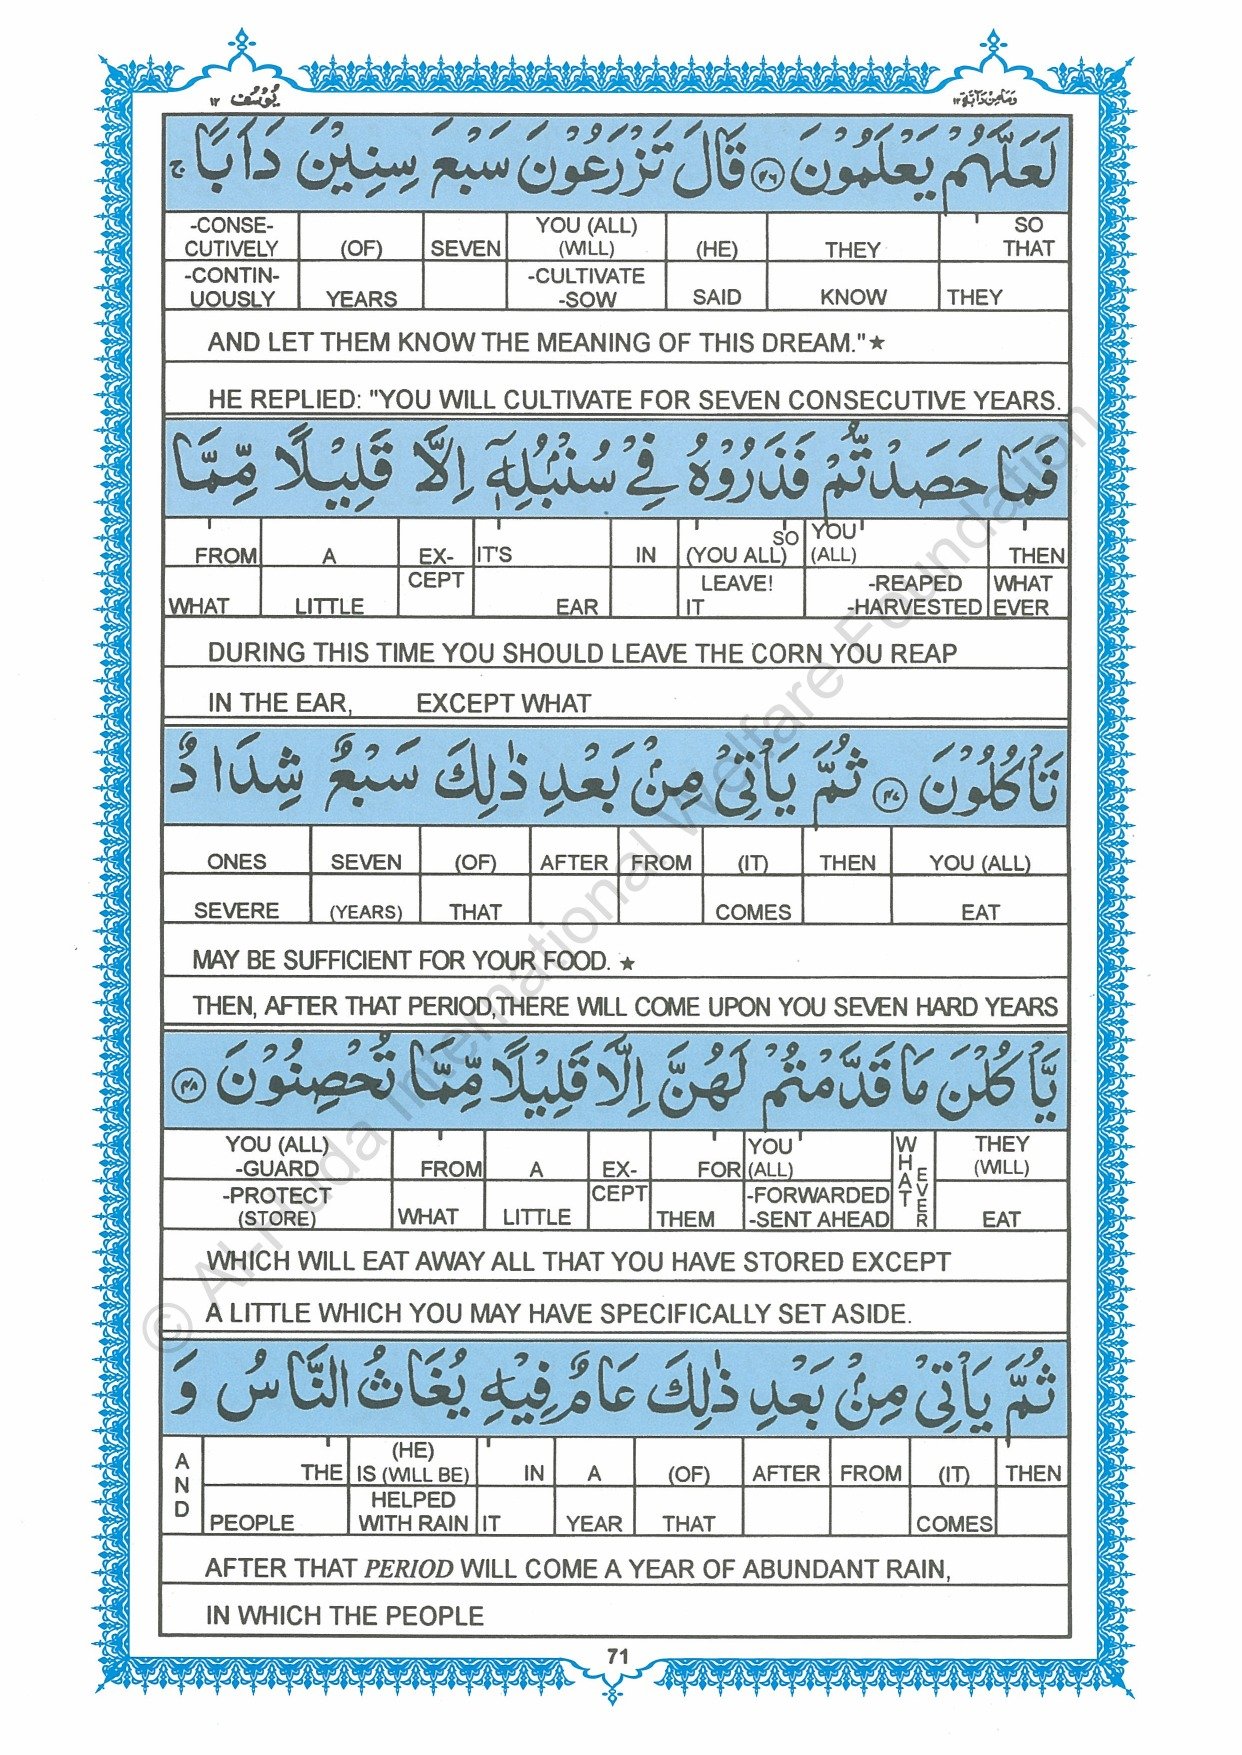 وَمَا مِنْ دَآبَّةٍ ١٢
يُوْسُف ١٢
لَعَلَّهُمْ يَعْلَمُوْنَ ﴿٤٦﴾ قَالَ تَزْرَعُوْنَ سَبْعَ سِنِيْنَ دَاَبًا ج
-CONSE- (OF) SEVEN YOU (ALL) (HE) THEY SO
CUTIVELY (WILL) THAT
-CONTIN- YEARS -CULTIVATE SAID KNOW THEY
UOUSLY -SOW
AND LET THEM KNOW THE MEANING OF THIS DREAM."★
HE REPLIED: "YOU WILL CULTIVATE FOR SEVEN CONSECUTIVE YEARS.
فَمَا حَصَدْتُّمْ فَذَرُوْهُ فِيْ سُنْۢبُلِهٖٓ اِلَّا قَلِيْلًا مِّمَّا
FROM A EX- IT'S IN SO (YOU ALL) YOU (ALL) THEN
WHAT LITTLE CEPT EAR LEAVE! IT -REAPED WHAT
-HARVESTED EVER
DURING THIS TIME YOU SHOULD LEAVE THE CORN YOU REAP
IN THE EAR, EXCEPT WHAT
تَاْكُلُوْنَ ﴿٤٧﴾ ثُمَّ يَاْتِيْ مِنْۢ بَعْدِ ذٰلِكَ سَبْعٌ شِدَادٌ
ONES SEVEN (OF) AFTER FROM (IT) THEN YOU (ALL)
SEVERE (YEARS) THAT COMES EAT
MAY BE SUFFICIENT FOR YOUR FOOD. ★
THEN, AFTER THAT PERIOD,THERE WILL COME UPON YOU SEVEN HARD YEARS
يَّاْكُلْنَ مَا قَدَّمْتُمْ لَهُنَّ اِلَّا قَلِيْلًا مِّمَّا تُحْصِنُوْنَ ﴿٤٨﴾
YOU (ALL) FROM A EX- FOR YOU (ALL) WHAT EVER THEY
-GUARD (WILL)
-PROTECT WHAT LITTLE CEPT THEM -FORWARDED EAT
(STORE) -SENT AHEAD
WHICH WILL EAT AWAY ALL THAT YOU HAVE STORED EXCEPT
A LITTLE WHICH YOU MAY HAVE SPECIFICALLY SET ASIDE.
ثُمَّ يَاْتِيْ مِنْۢ بَعْدِ ذٰلِكَ عَامٌ فِيْهِ يُغَاثُ النَّاسُ وَ
AND THE (HE) IN A (OF) AFTER FROM (IT) THEN
IS (WILL BE)
PEOPLE HELPED IT YEAR THAT COMES
WITH RAIN
AFTER THAT PERIOD WILL COME A YEAR OF ABUNDANT RAIN,
IN WHICH THE PEOPLE
71
© Al-Huda International Welfare Foundation